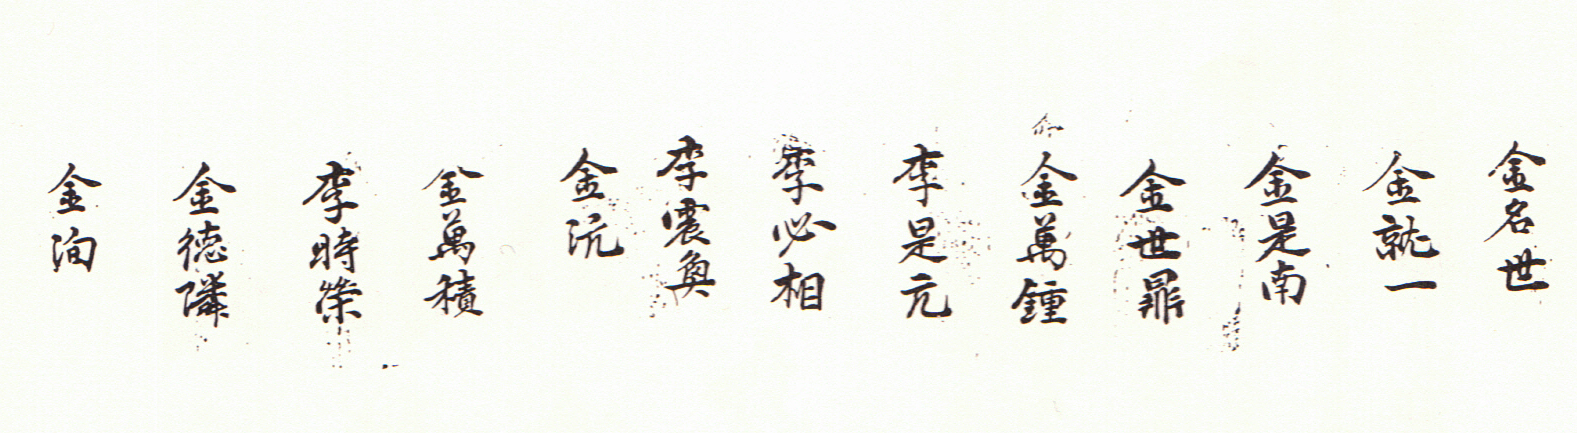 金名世
金就一
金是南
金世鼎
金萬鍾
李是元
李必相
李震奐
金沅
金萬積
李時榮
金德隣
金洵